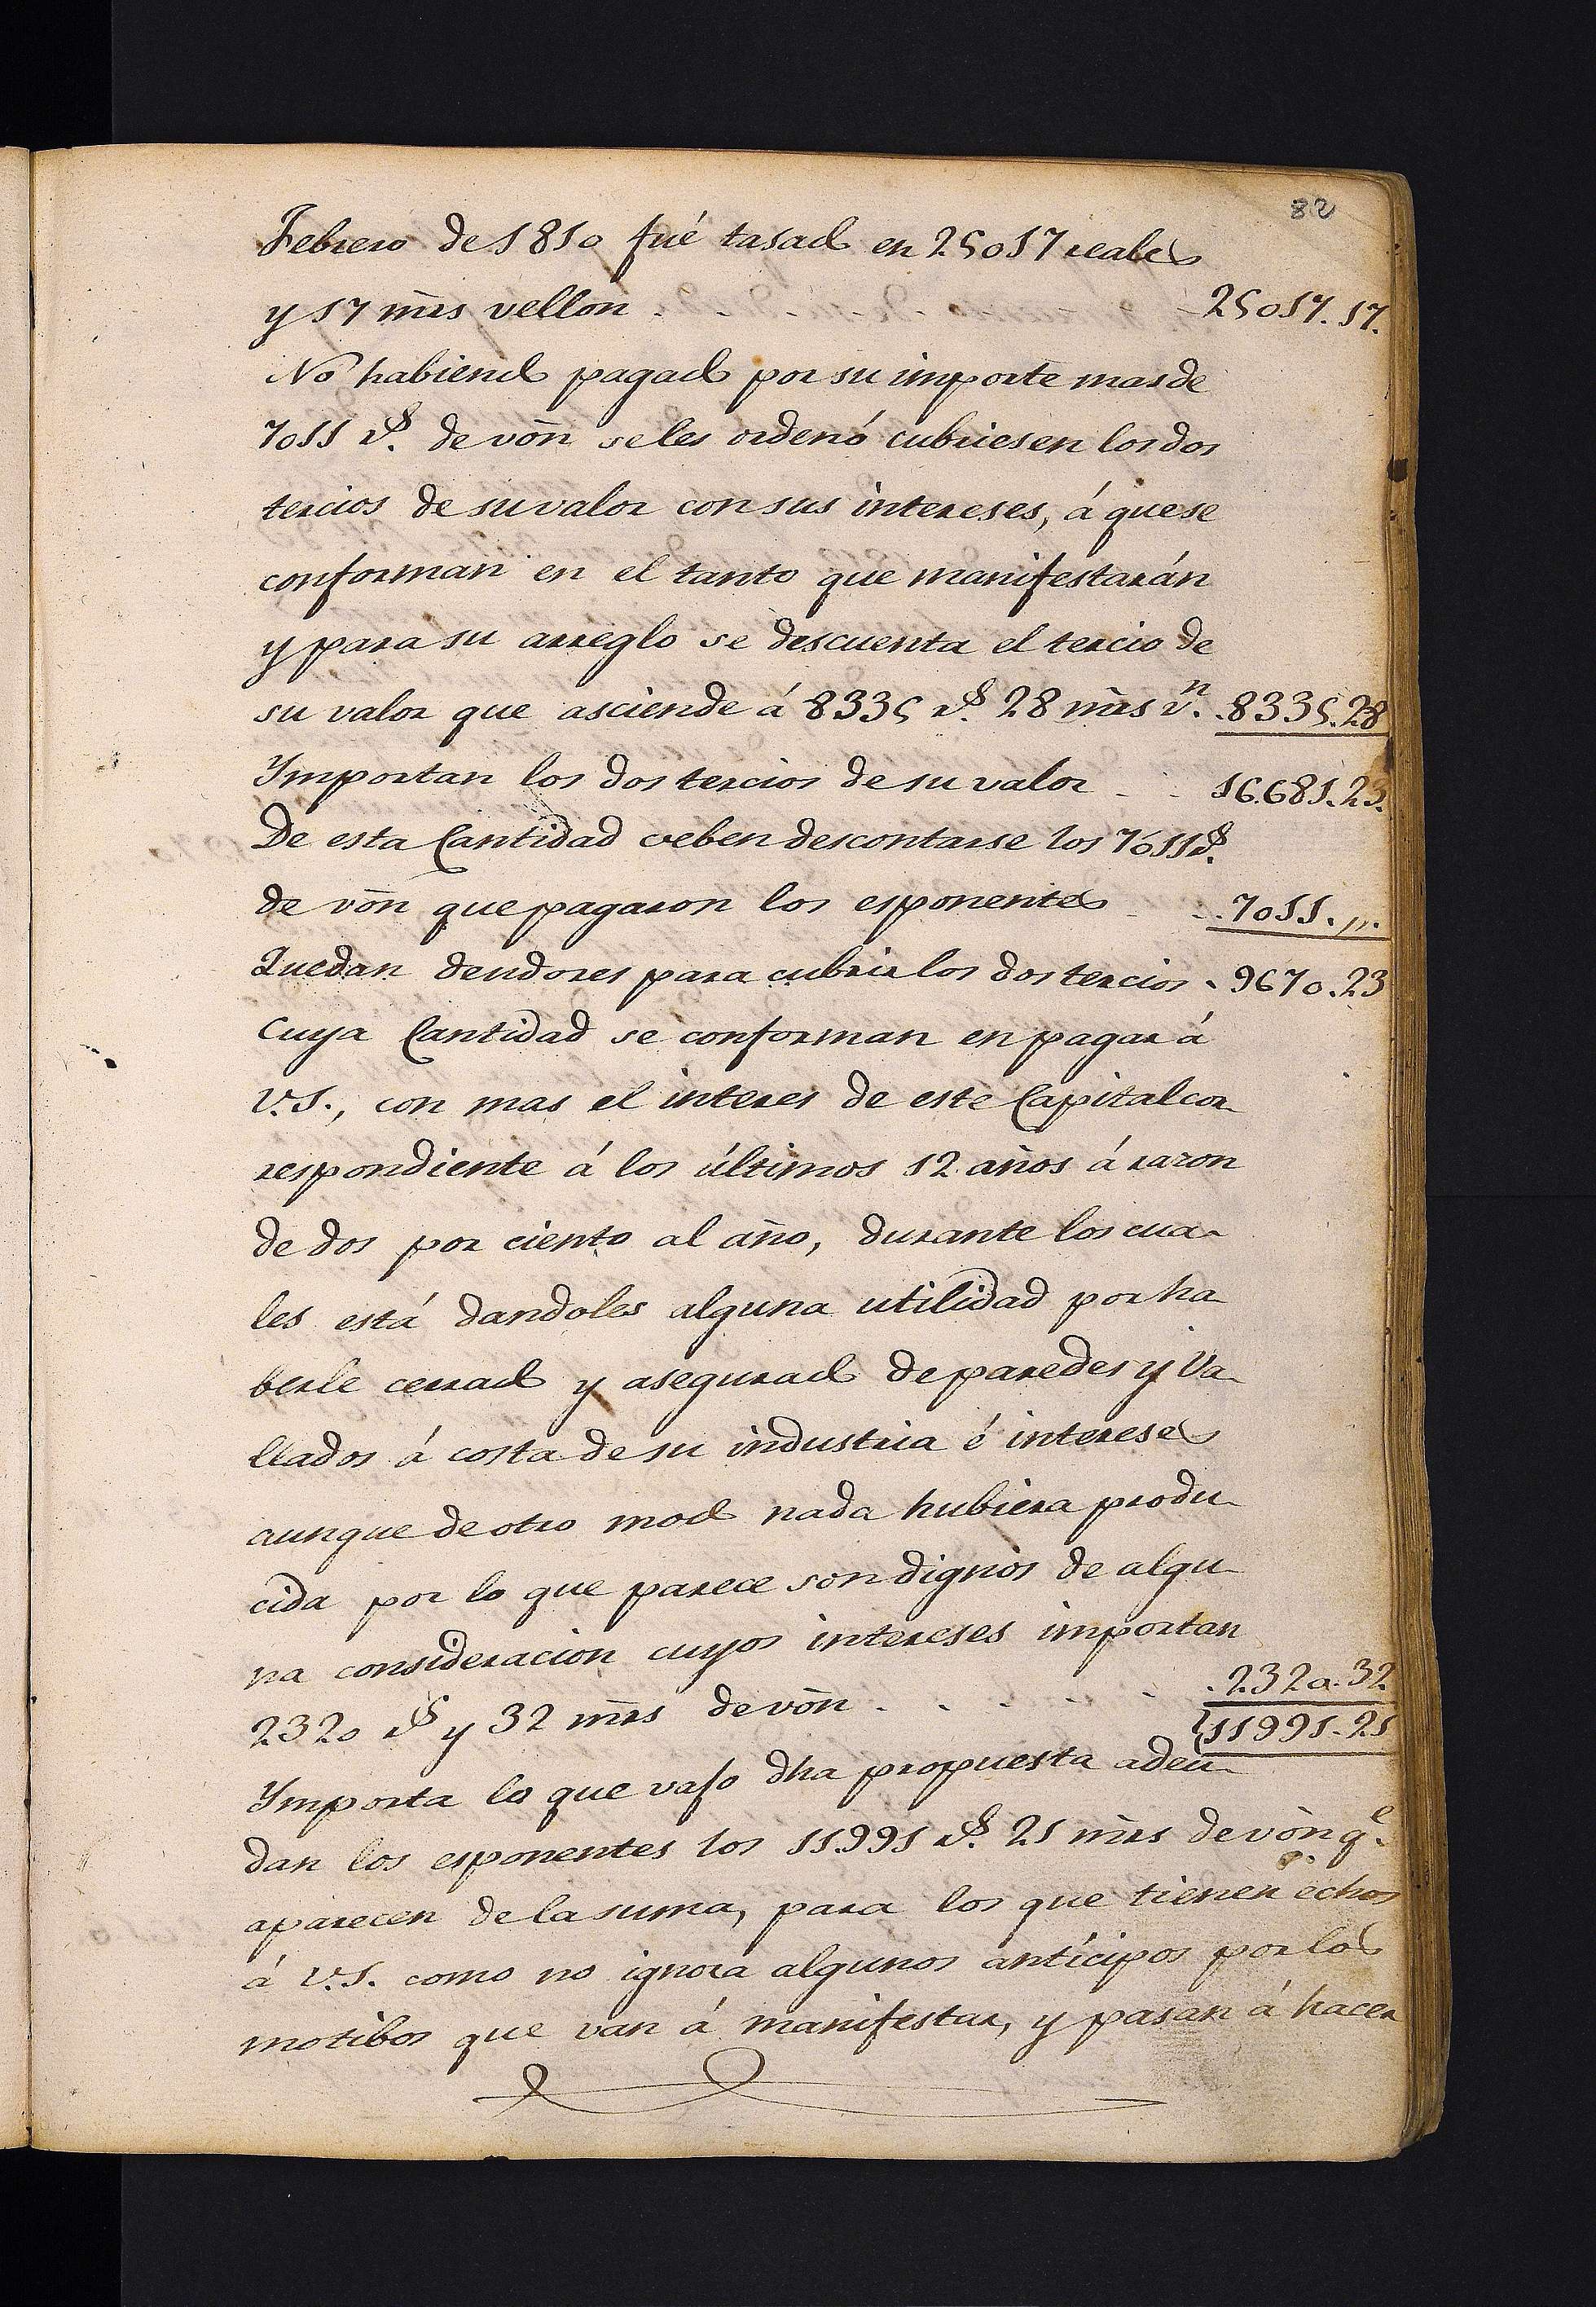 82
Febrero de 1810 fué tasado en 25017 reales
y 17 mrs vellon . . . . . . 25017.17.
No habiendo pagado por su importe mas de
7011 rs. de von se les ordenó cubriesen los dos
tercios de su valor con sus intereses, á que se
conforman en el tanto que manifestarán
y para su arreglo se descuenta el tercio de
su valor que asciende á 8335 rs. 28 mrs vn. . 8335.28
Ymportan los dos tercios de su valor . . 16.681.23.
De esta Cantidad deben descontarse los 7011 rs.
de von que pagaron los esponentes . . . 7011. "
Quedan deudores para cubrir los dos tercios . 9670.23
Cuya Cantidad se conforman en pagar á
V.S., con mas el interes de este Capital cor-
respondiente á los últimos 12 años á razon
de dos por ciento al año, durante los cua-
les está dandoles alguna utilidad por ha-
berle cerrado y asegurado de paredes y Va-
llados á costa de su industria é intereses
aunque de otro modo nada hubiera produ-
cida por lo que parece son dignos de algu-
na consideracion cuyos intereses importan
2320 rs y 32 mrs de von . . . . . . 2320.32
11991.21
Ymporta lo que vajo dha propuesta adeu-
dan los esponentes los 11.991 rs. 21 mrs de von qe.
aparecen de la suma, para los que tienen echos
á V.S. como no ignora algunos antícipos por los
motibos que van á manifestar, y pasan á hacer